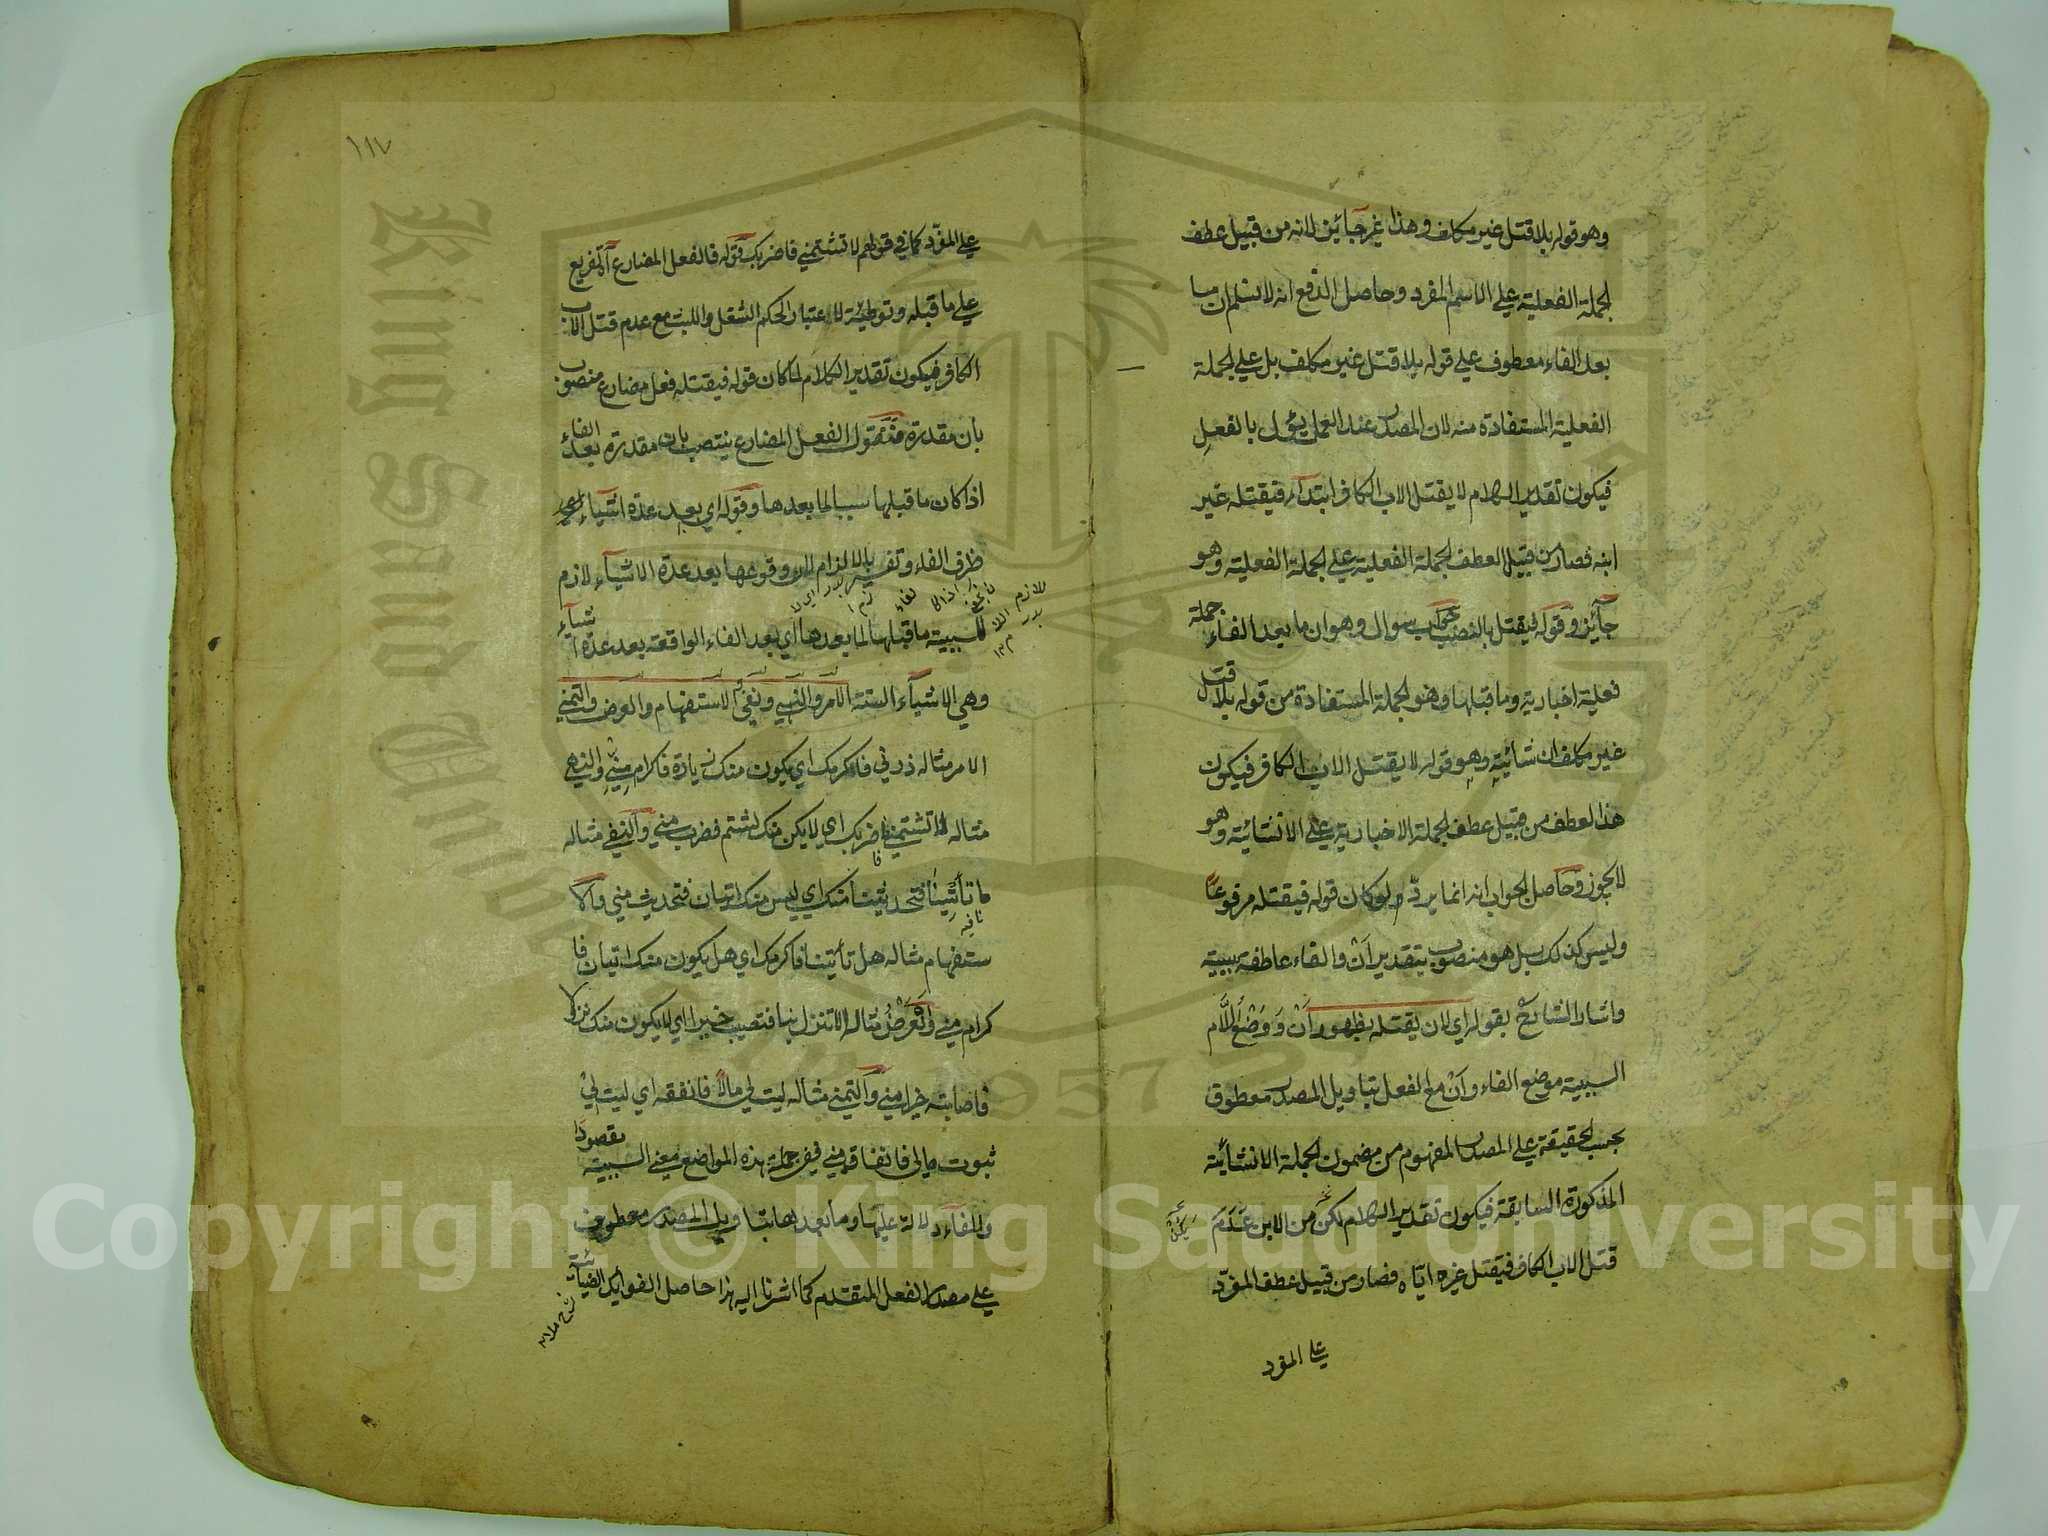 وهو قوله بلا قتل غير مكلف وهذا غير جائز لانه من قبيل عطف
الجملة الفعلية على الاسم المفرد وحاصل الدفع انه لا نسلم ان ما
بعد الفاء معطوف على قوله بلا قتل غير مكلف بل على الجملة
الفعلية المستفادة منه لان المصدر عند العمل يؤل بالفعل
فيكون تقدير الكلام لا يقتل الاب الكافر ابتداء فيقتله غير
ابنه فصار من قبيل العطف الجملة الفعلية على الجملة الفعلية وهو
جآئز وقوله فيقتل بالنصب جواب سوال وهو ان ما بعد الفاء جملة
فعلية اخبارية وما قبلها وهو الجملة المستفادة من قوله بلا قتل
غير مكلف انشائية وهو قوله لا يقتل الاب الكافر فيكون
هذا العطف من قبيل عطف الجملة الاخبارية على الانشائية وهو
لا يجوز وحاصل الجواب انه انما يرد لو كان قوله فيقتله مرفوعا
وليس كذلك بل هو منصوب بتقدير أن والفاء عاطفة سببية
واشار الشارح بقوله اي لان يقتله بظهور أن ووضع اللام
السببية موضع الفاء وأن مع الفعل بتاويل المصدر معطوف
بحسب الحقيقة على المصدر المفهوم من مضمون الجملة الانشائية
المذكورة السابقة فيكون تقدير الكلام لكن من الابن عدم
ليكن
قتل الاب الكافر فيقتل غيره اياه فصار من قبيل عطف المفرد
على المفرد
١١٧
على المفرد كما في قولهم لا تشتمني فاضربك قوله فالفعل المضارع آه تفريع
على ما قبله وتوطئة لاعتبار الحكم الشغل واللبث مع عدم قتل الاب
الكافر فيكون تقدير الكلام لما كان قوله فيقتله فعل مضارع منصوب
بان مقدرة فنقول الفعل المضارع ينتصب بان مقدرة بعد الفاء
اذا كان ما قبلها سببا لما بعدها وقوله اي بعد عدة اشياء
ظرف الفاء وتفسير بالالزام لان وقوعها بعد عدة الاشياء لازم
للسببية ما قبلها لما بعدها اي بعد الفاء الواقعة بعد عدة اشياء
وهي الاشياء الستة الامر والنهي ونفي الاستفهام والعرض والتمني
الامر مثاله زرني فاكرمك اي يكون منك زيارة فاكرام مني والنهي
مثاله لا تشتمني فاضربك اي لا يكن منك شتم فضرب مني والنفي مثاله
ما تأتينا فتحدثنا منك اي ليس منك اتيان فتحديث مني والا
ستفهام مثاله هل تأتينا فاكرمك اي هل يكون منك اتيان فا
كرام مني والعرض مثاله الا تنزل بنا فتصيب خيرا اي الا يكون منك نزول
فاصابة خير مني والتمني مثاله ليت لي مالا فانفقه اي ليت لي
ثبوت مال فانفاق مني ففي جملة هذه المواضع معنى السببية مقصودا
وللفاء دلالة عليها وما بعدها بتاويل المصدر معطوف
على مصدر الفعل المتقدم كما اشرنا اليه هذا حاصل الفوائد الضيائية
Copyright © King Saud University
King Saud University
1957